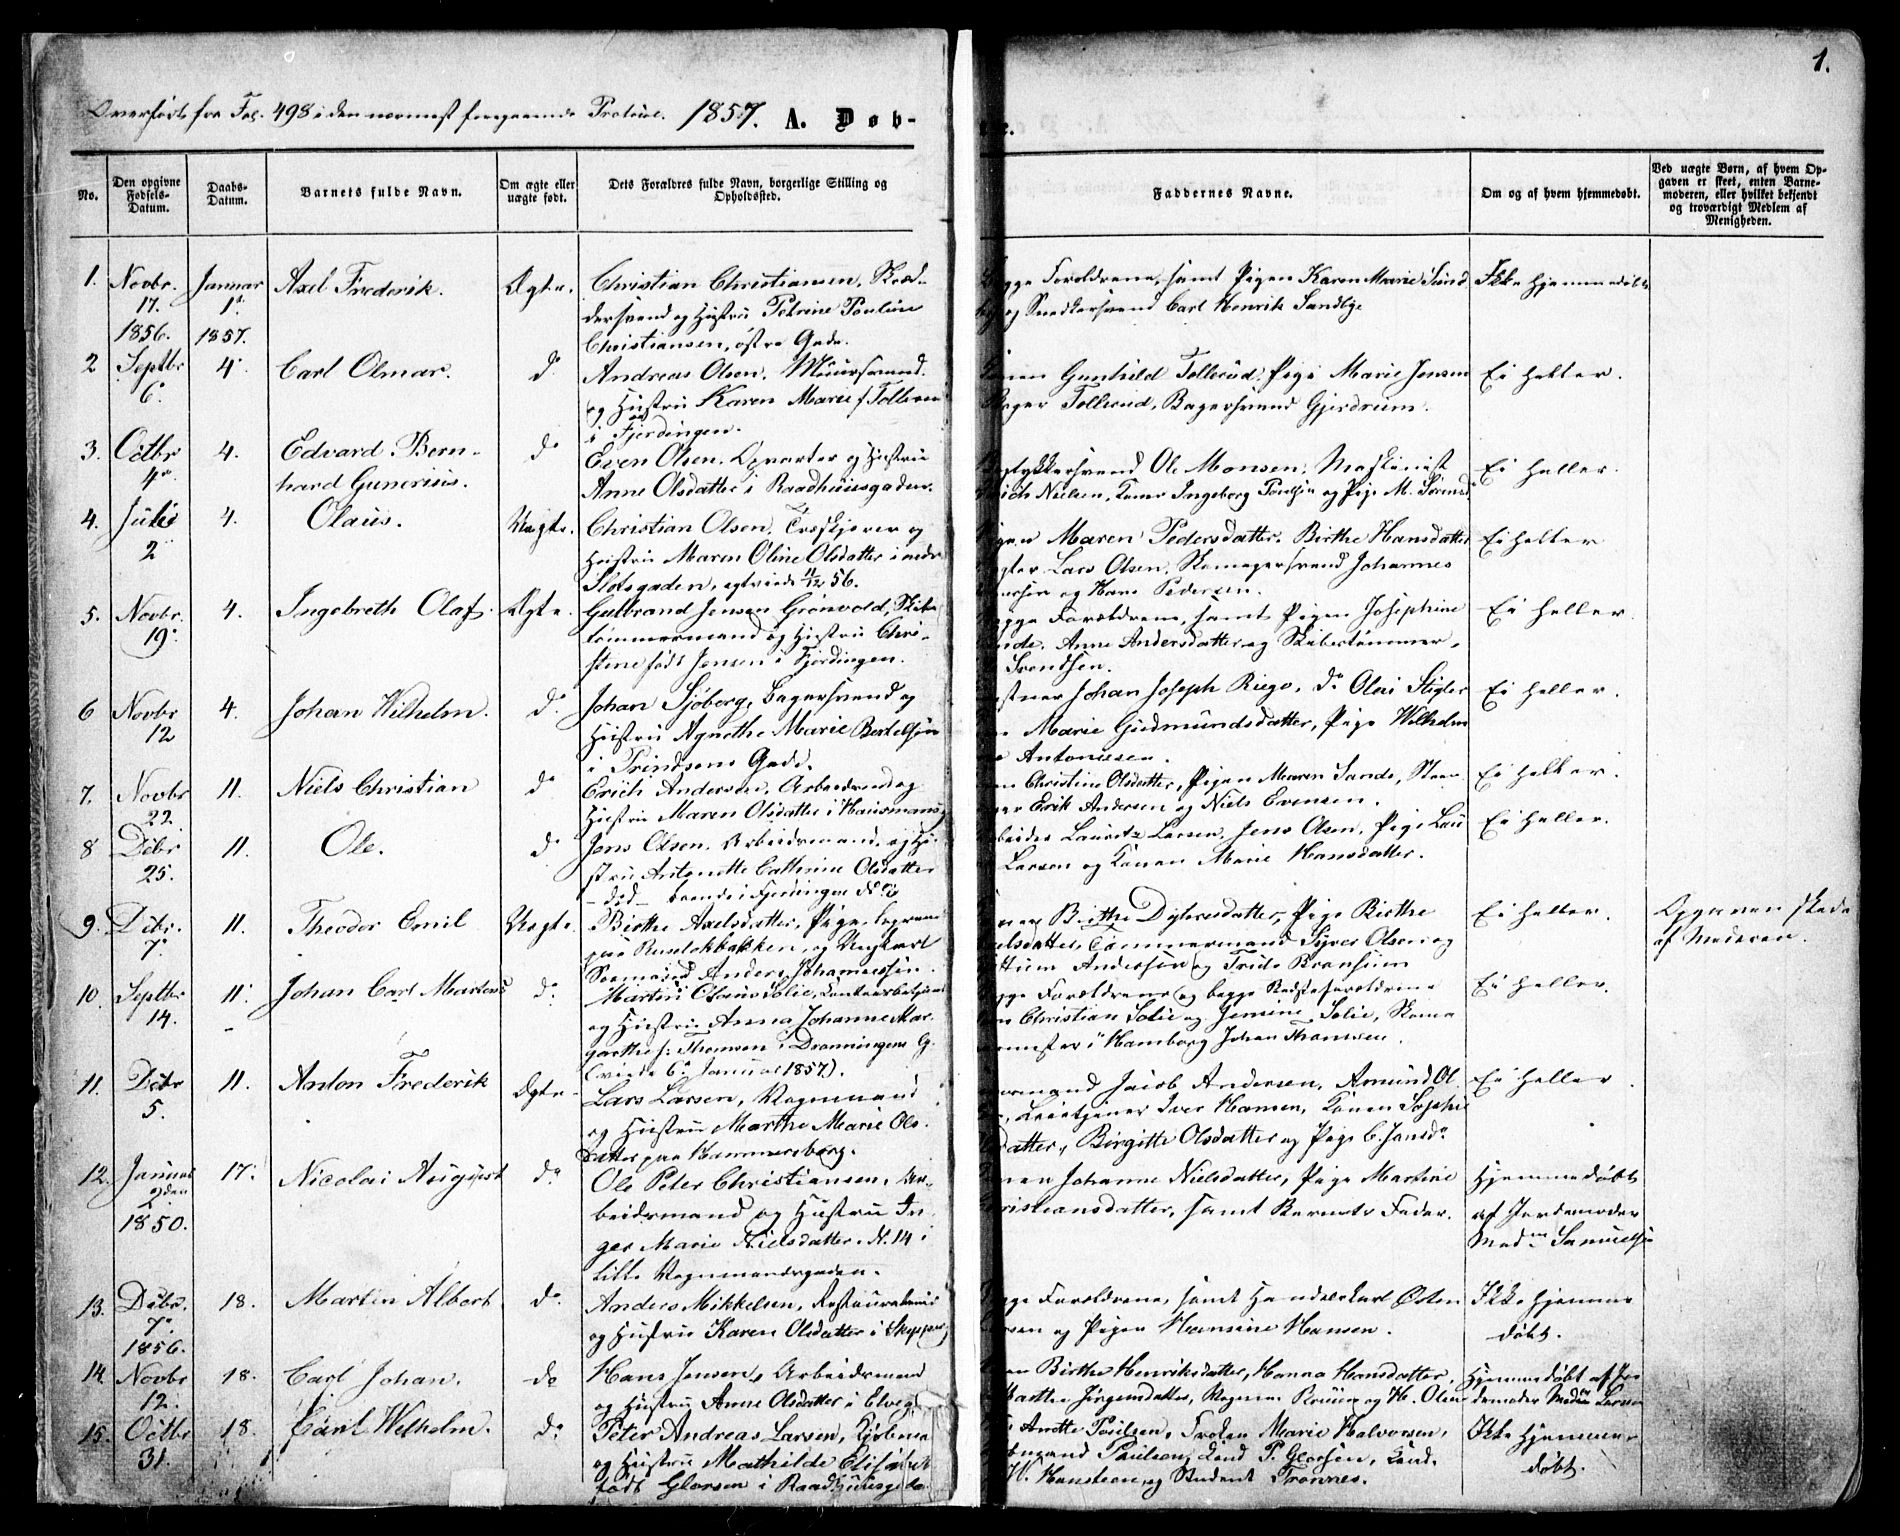 1.
Overført fra Fol. 498 i den nærmest foregaaende Protocol. 1857. A. Døb-
No.
Den opgivne Fødsels-Datum.
Daabs-Datum.
Barnets fulde Navn.
Om ægte eller uægte født.
Dets Forældres fulde Navn, borgerlige Stilling og Opholdssted.
Faddernes Navne.
Om og af hvem hjemmedøbt.
Ved uægte Børn, af hvem Opgaven er skeet, enten Barnemoderen, eller hvilket bekjendt og troværdigt Medlem af Menigheden.
1. Novbr. 17. 1856. Januar 1. 1857. Axel Frederik. Ægte.
Christian Christiansen, Skræd-
dersvend og Hustru Petrine Pouline
Christiansen, østre Gade.
Forældrene, samt Pigen Karen Marie Sund
og Snedkersvend Carl Henrik Sandbye
Ikke hjemmedøbt
2 Septbr 6. 4. Carl Olmar. do
Andreas Olsen, Muursvend.
og Hustru Karen Marie f. Tollersen
i Fjerdingen.
Gunhild Tollerud, Pige Marie Jensen
Tollerud, Bagersvend Gjerdrum.
Ei heller.
3. Octbr 4. 4. Edvard Bern-
hard Gunerius. do
Even Olsen, Opvarter og Hustru
Anne Olsdatter i Raadhuusgaden.
Ole Monsen, Maskinist
Nielsen, Ingeborg Poulsen og Pige M. Sørensd
Ei heller.
4. Juli 2 4. Olaus. Uægte.
Christian Olsen, Træskjerer og
Hustru Maren Oline Olsdatter i nedr
Slotsgaden, egtviede 11/12 56.
Maren Pedersdatter, Birthe Hansdatter
Lars Olsen, Skomagersvend Johannes
og Hans Pedersen.
Ei heller
5. Novbr. 19. 4. Ingebreth Olaf. Ægte.
Gulbrand Jensen Grønvold, Skibs
tømmermand og Hustru Chri-
stine født Jensen i Fjerdingen.
Forældrene, samt Pigen Josephine
Anne Andersdatter og Skibstømmer.
Svendsen.
Ei heller.
6 Novbr 12 4. Johan Wilhelm. do
Johan Sjøberg, Bagersvend og
Hustru Agnethe Marie Bertelsen
i Brindsens Gade.
Johan Joseph Riego, do Olai Stigler
Marie Gudmundsdatter, Pige Wilhelm
Antonisen.
Ei heller.
7. Novbr 22. 11. Niels Christian do
Erich Andersen, Arbeidsmand og
Hustru Maren Olsdatter i Hausmansg
Christine Olsdatter, Pigen Maren Sande,
Erik Andersen og Niels Evensen.
Ei heller.
8 Debr 25. 11. Ole. do
Jens Olsen, Arbeidsmand, og Hu-
stru Antonette Cathrine Olsdatter
i Fjerdingen
Lauritz Larsen, Jens Olsen, Pige
Larsen og Konen Marie Hansdatter.
Ei heller.
9. Debr. 7. 11. Theodor Emil Uægte.
Birthe Axelsdatter, Pige,
paa Ruseløkbakken, og Ungkarl
Sømand Anders Johannessen.
Birthe Pige Birthe
Tømmermand Syver Olsen og
Andersen og
Ei heller.
Opgaven skede
af Moderen.
10. Septbr 14. 11. Johan Carl Martens do
Martin Olaus Solie,
og Hustru Anna Johanne Mar-
garethe f: Thomsen i Dronningens G.
(viede 6. Januar 1857).
Forældrene og begge Bedsteforældrene
Christian Solie og Jemine Solie,
i Hamborg Johan Thomsen.
Ei heller.
11. Debr 5. 11. Anton Frederik Ægte.
Lars Larsen, Vognmand
og Hustru Marthe Marie Ols-
datter paa Hammersborg.
Jacob Andersen, Amund Ol.
Iver Hansen, Konen Sophie
datter, Birgitte Olsdatter og Pige C. Jansd.
Ei heller
12. Januar 2den 1850. 17. Nicolai August do
Ole Peter Christiansen, Ar-
beidsmand og Hustru In-
ger Marie Nielsdatter. N. 14 i
Lille Vognmandsgaden.
Johanne Nielsdatter, Pige Martine
Christiansdatter, samt Barnets Fader.
Hjemmedøbt
af Jordemoder
Madm Samuelsen
13. Debr. 7. 1856. 18. Martin Albert do
Anders Mikkelsen,
og Hustru Karen Olsdatter i Skipperg
Forældrene, samt Handelskarl Østen
og Pigen Hansine Hansen.
Ikke hjemme
døbt.
14. Novbr 12. 18. Carl Johan. do
Hans Jensen, Arbeidsmand
og Hustru Anne Olsdatter i Elveg
Birthe Henriksdatter, Hanna Hansdatter,
Marthe Jørgensdatter, og H. Olsen
Hjemmedøbt af Jor
demoder Madm Larsen
15. Octbr 31. 18. Carl Wilhelm. do
Peter Andreas Larsen, Kjøbma
og Hustru Mathilde Elisabet
født Glorsen i Raadhuusgaden
Anette Poulsen, Frøken Marie Halvorsen,
Poulsen, Cand P. Glorsen, Cand.
Hansteen og Student Trønnes.
Ikke hjemme
døbt.